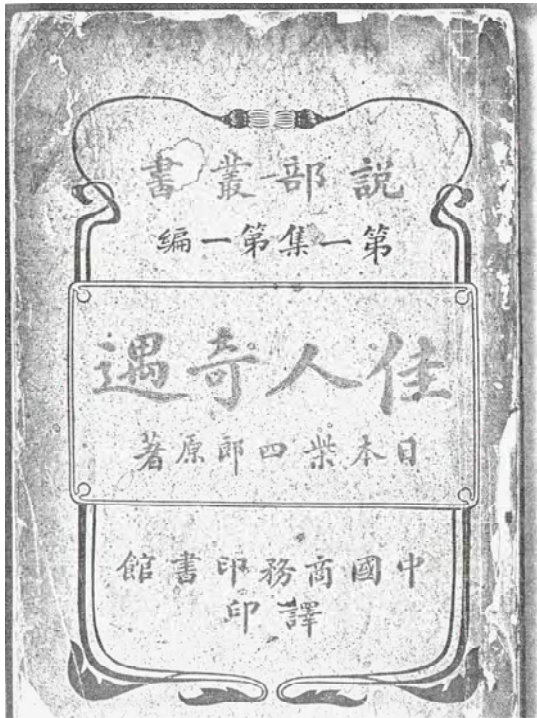 說部叢書
第一集第一編
佳人奇遇
日本柴四郎原著
中國商務印書館
譯印